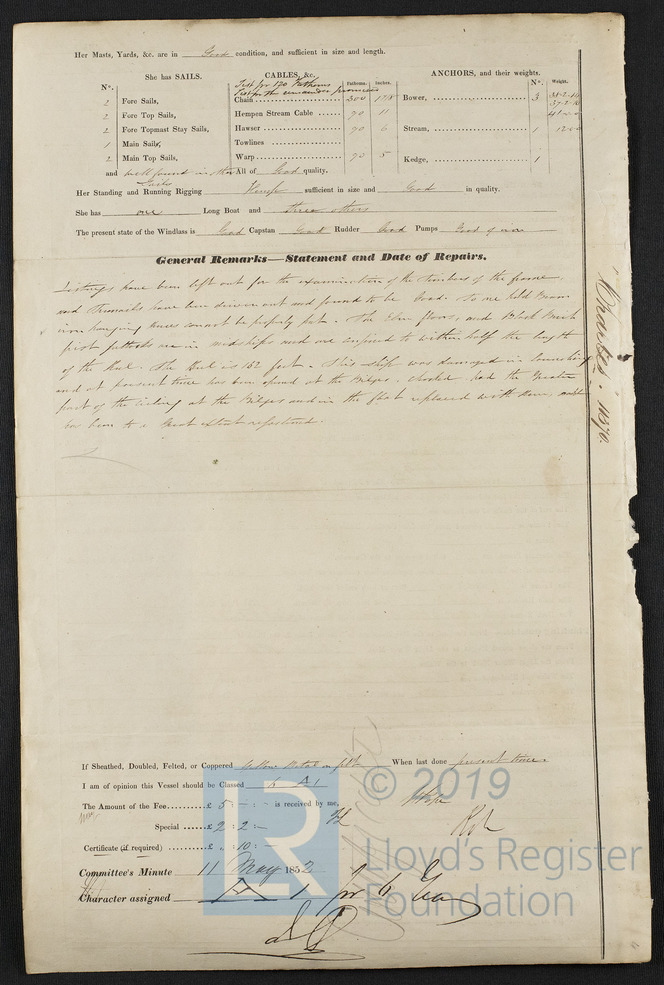 Her Masts, Yards, &c. are in Good condition, and sufficient in size and length.
She has SAILS.
N°.
2 Fore Sails,
2 Fore Top Sails,
2 Fore Topmast Stay Sails,
1 Main Sails,
2 Main Top Sails,
and well found in other Sails
CABLES, &c.
Fathoms. Inches.
Test for 120 Fathoms
Test for the remainder
Chain 300 1 7/8
Hempen Stream Cable 90 11
Hawser 90 6
Towlines
Warp 90 5
All of Good quality.
ANCHORS, and their weights.
N°. Weight.
Bower, 3
Stream, 1
Kedge, 1
Her Standing and Running Rigging Hemp sufficient in size and Good in quality.
She has one Long Boat and three others
The present state of the Windlass is Good Capstan Good Rudder Good Pumps Good
General Remarks—Statement and Date of Repairs.
have been left out for the examination of the timbers of the frame,
and Treenails have been driven out and found to be Good. hold Beam
iron hanging knees cannot be properly put. The Elm floors, and Black Birch
first futtocks are in midships and are confined to within half the length
of the Keel. The Keel is 152 feet. This ship was damaged in launching
and at present time has been opened at the Bilges, had the Greater
part of the ceiling at the Bilges and in the flat replaced with
been to a Great extent refastened.
11570.
If Sheathed, Doubled, Felted, or Coppered Yellow Metal on felt When last done present time.
I am of opinion this Vessel should be Classed 6 A 1
The Amount of the Fee £ 5 : - : - is received by me,
Special £ 2 : 2 : -
Certificate (if required) £ : 10 : -
Committee's Minute 11 May 1852
Character assigned A 1 for 6 Years
© 2019
Lloyd's Register
Foundation
LR